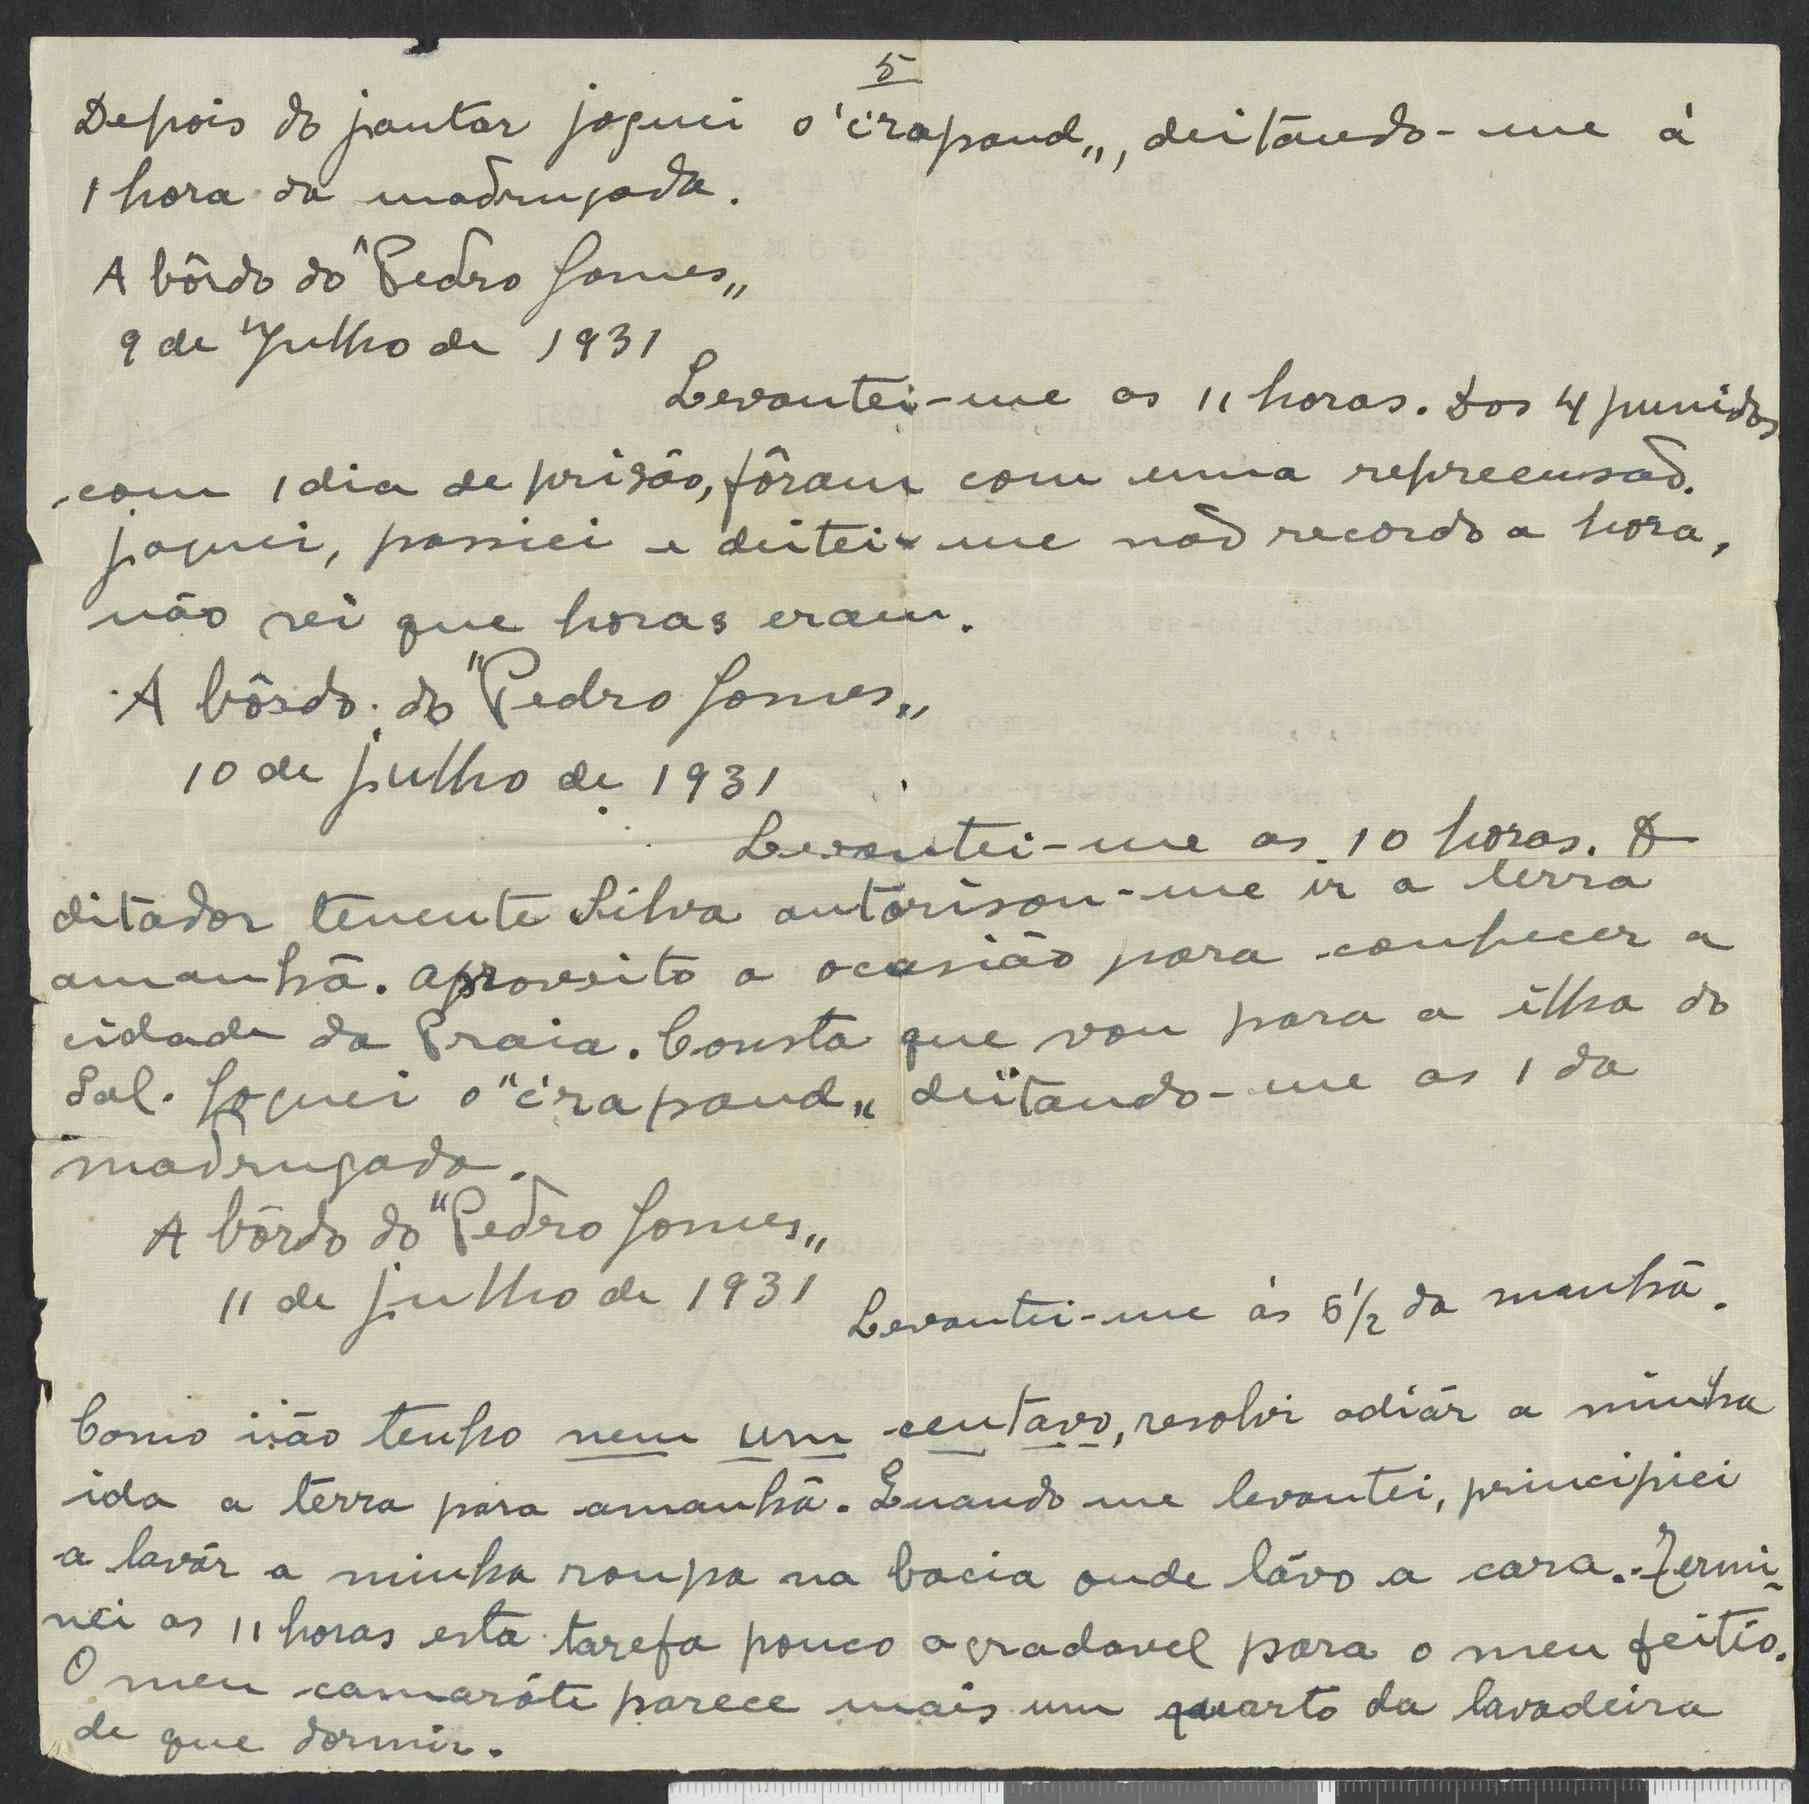 5
Depois do jantar joguei o "crapaud„, deitando-me á
1 hora da madrugada.
A bôrdo do "Pedro Gomes„
9 de Julho de 1931
Levantei-me as 11 horas. Dos 4 punidos
com 1 dia de prisão, fôram com uma repreensaõ.
Joguei, passiei e deitei-me naõ recordo a hora,
não sei que horas eram.
A bôrdo do "Pedro Gomes„
10 de Julho de 1931
Levantei-me as 10 horas. O
ditador tenente Silva autorisou-me ir a terra
amanhã. Aproveito a ocasião para conhecer a
cidade da Praia. Consta que vou para a ilha do
Sal. Joguei o "crapaud„ deitando-me as 1 da
madrugada.
A bôrdo do "Pedro Gomes„
11 de Julho de 1931
Levantei-me ás 5 1/2 da manhã.
Como não tenho nem um centavo, resolvi adiár a minha
ida a terra para amanhã. Quando me levantei, principiei
a lavár a minha roupa na bacia onde lávo a cara. Termi-
nei as 11 horas esta tarefa pouco agradavel para o meu feitio.
O meu camaróte parece mais um quarto da lavadeira
de que dormir.